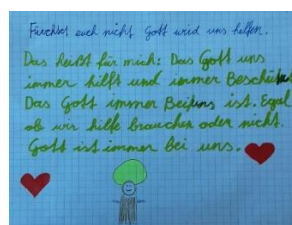 Fürchtet euch nicht Gott wird uns helfen.
Das heißt für mich: Das Gott uns
immer hilft und immer Beschützt
Das Gott immer Bei uns ist. Egal
ob wir hilfe brauchen oder nicht.
Gott ist immer bei uns.